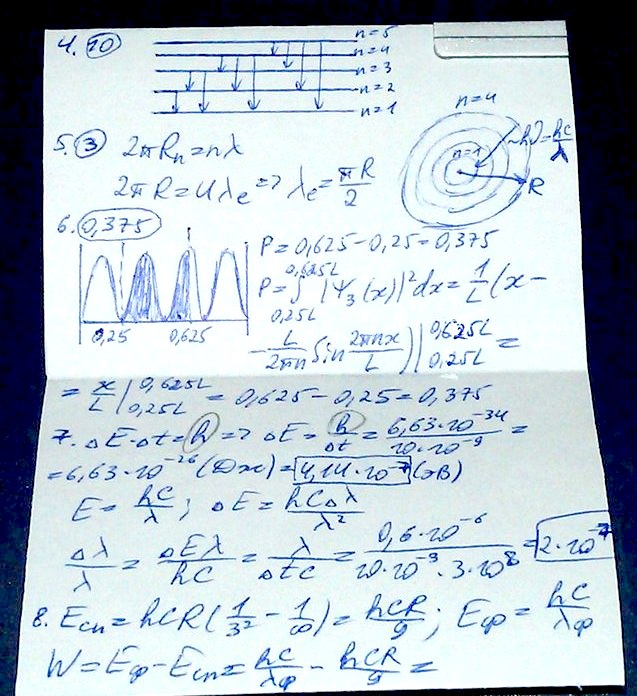 4. 10
n=5
n=4
n=3
n=2
n=1
5. 3 2πRₙ=nλ
2πR=4λe => λe=πR/2
n=4
n=1
hν=hc/λ
R
6. 0,375
0,25 0,625
P=0,625-0,25=0,375
P=∫_{0,25L}^{0,625L} |Ψ₃(x)|²dx=1/L(x-
-L/2πn Sin 2πnx/L)|_{0,25L}^{0,625L}=
=x/L|_{0,25L}^{0,625L}=0,625-0,25=0,375
7. ΔE·Δt=h => ΔE=h/Δt=6,63·10⁻³⁴/10·10⁻⁹=
=6,63·10⁻²⁶(Дж)=4,14·10⁻⁷(эВ)
E=hc/λ; ΔE=hcΔλ/λ²
Δλ/λ=ΔEλ/hc=λ/Δtc=0,6·10⁻⁶/10·10⁻⁹·3·10⁸=2·10⁻⁷
8. Eсп=hcR(1/3²-1/∞)=hcR/9; Eф=hc/λф
W=Eф-Eсп=hc/λф-hcR/9=